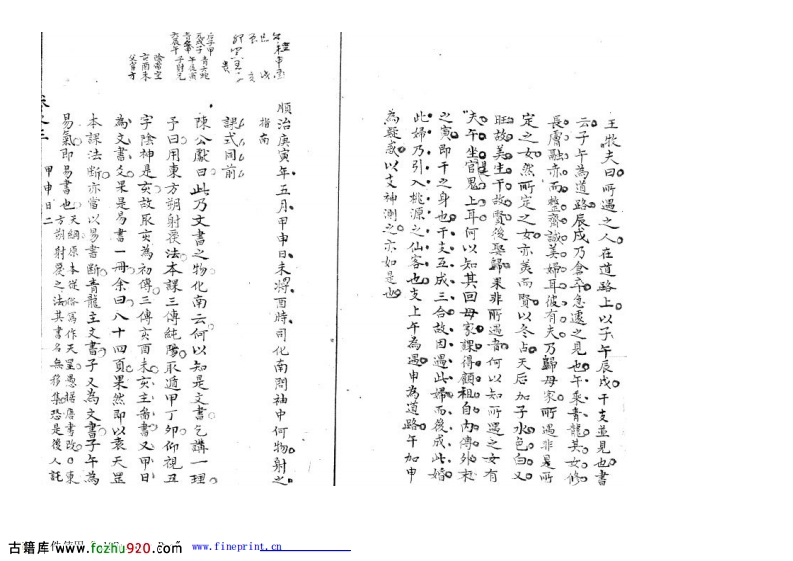 王牧夫曰所遇之人在道路上以子午辰戌干支並見也書
云子午為道路辰戌乃倉卒急遽之見也午乘青龍其女修
長膚融赤而整齊誠美婦耳彼有夫乃歸母家所遇非是所
定之女然所定之女亦美而賢以冬占天后加子水色白又
旺故美生干故賢後娶歸果非所遇者何以知所遇之女有
夫午坐官鬼上耳何以知其回母家課得顧祖自內傳外末
之寅即干之身也干支互成三合故因遇此婦而後成此婚
此婦乃引入桃源之仙客也支上午為遇申為道路午加申
為疑惑以支神測之亦如是也
順治庚寅年五月甲申日未將酉時司化南問袖中何物射之
指南
課式同前
陳公獻曰此乃文書之物化南云何以知是文書乞講一理
予曰用東方朔射覆法本課三傳純陰取遁甲丁卯仰視丑
字陰神是亥故取亥為初傳三傳亥酉未亥主啚書又甲日
為文書爻果是易書一冊余曰八十四頁果然即以袁天罡
本課法斷亦當以易書斷青龍主文書子又為文書子午為
易氣即易書也 天綱原本從俗寫作天罡愚據唐書改○東
方朔射覆之法其書名無移集恐是後人託
甲申日二
古籍库 www.fozhu920.com
www.fineprint.cn